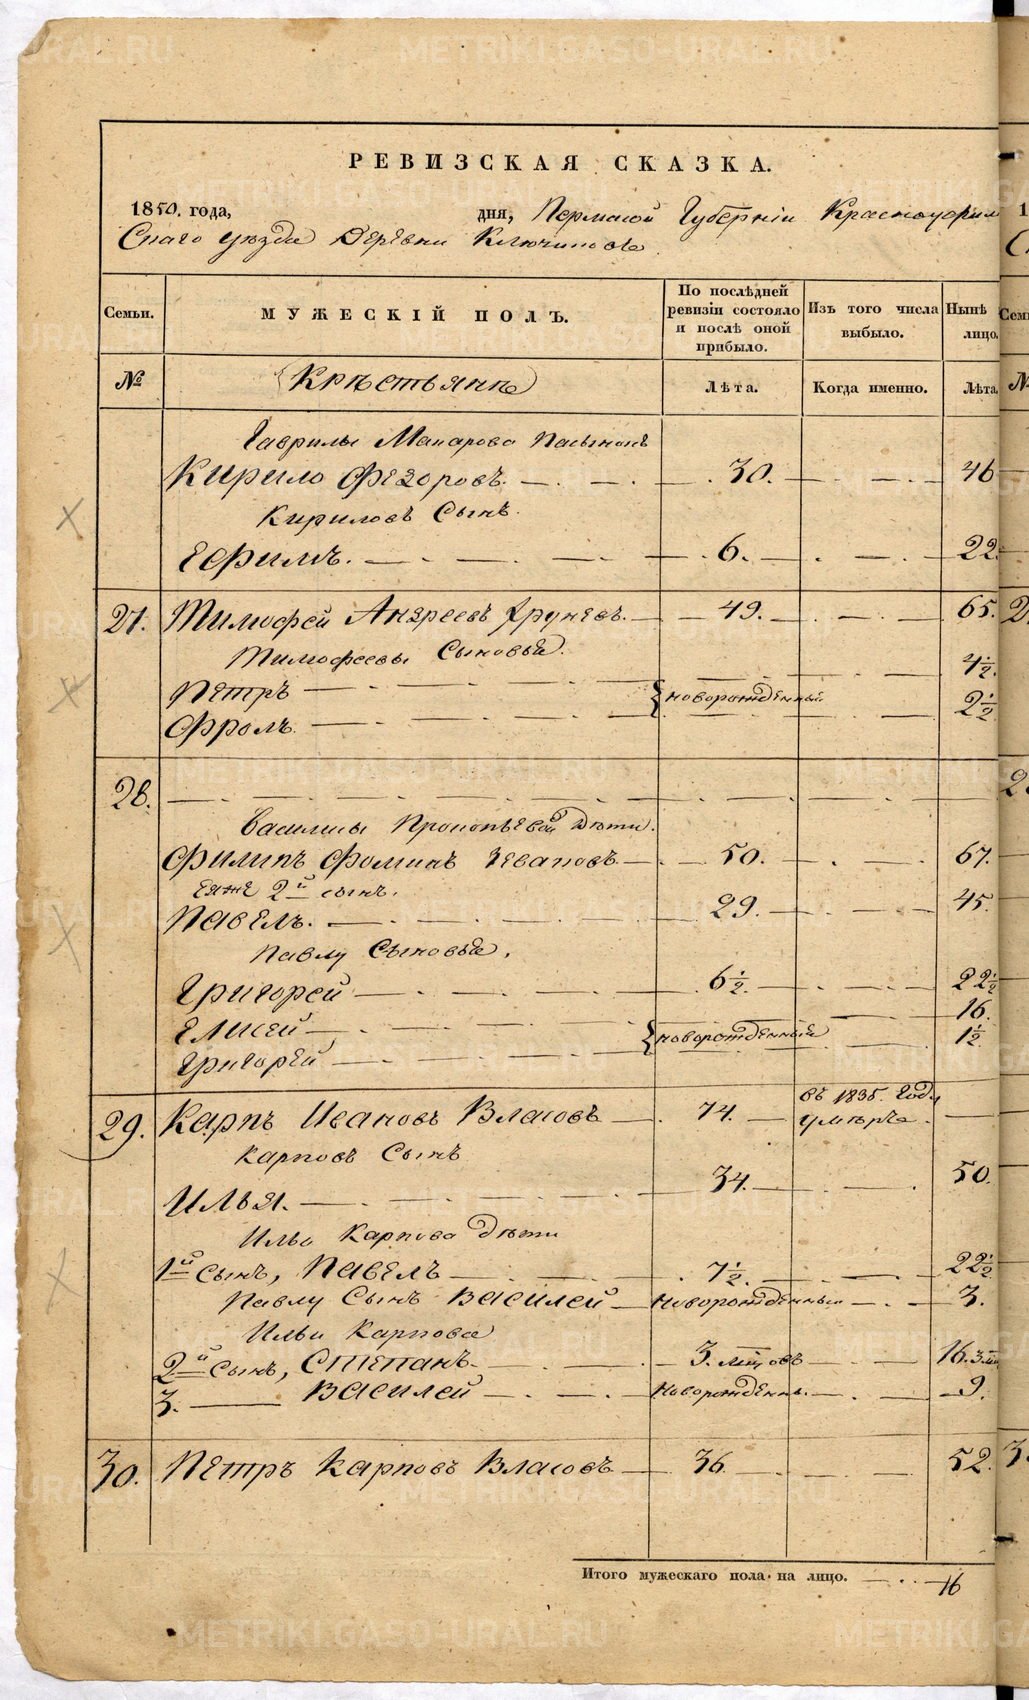 РЕВИЗСКАЯ СКАЗКА.
1850. года, дня, Пермской Губернiи Красноуфим
Скаго уѣзда Деревни Ключиковъ
Семьи. МУЖЕСКІЙ ПОЛЪ. По послѣдней ревизіи состояло и послѣ оной прибыло. Изъ того числа выбыло. Нынѣ лицо.
№ (Крѣстьянѣ) Лѣта. Когда именно. Лѣта.
Гаврилы Макарова пасынокъ
Кирило Федоровъ. 30. 46
Кириловъ Сынъ.
Ефимъ. 6. 22.
27. Тимофей Андреевъ 49. 65.
Тимофеевы Сыновья.
Петръ { новорожденный 4½.
Фролъ. 2½
28.
Василисы Прокопьевой Дѣти.
Филипъ Фоминъ 50. 67.
Еяже 2й сынъ.
Павелъ. 29. 45.
Павлу Сыновья.
Григорей 6½. 22½
Елисей { новорожденный 16.
Григорей 1½
29. Карпъ Ивановъ Власовъ 74. въ 1835. году умѣръ.
Карповъ Сынъ
Илья. 34. 50.
Ильи Карпова Дѣти
1й Сынъ, Павелъ 7½. 22½
Павлу Сынъ Василей Новорожденный 3.
Ильи Карпова
2й Сынъ, Степанъ. 3. мѣцовъ 16. 3 мѣ
3. Василей Новорожденн. 9.
30. Петръ Карповъ Власовъ 36 52.
Итого мужескаго пола на лицо. 16
METRIKI.GASO-URAL.RU